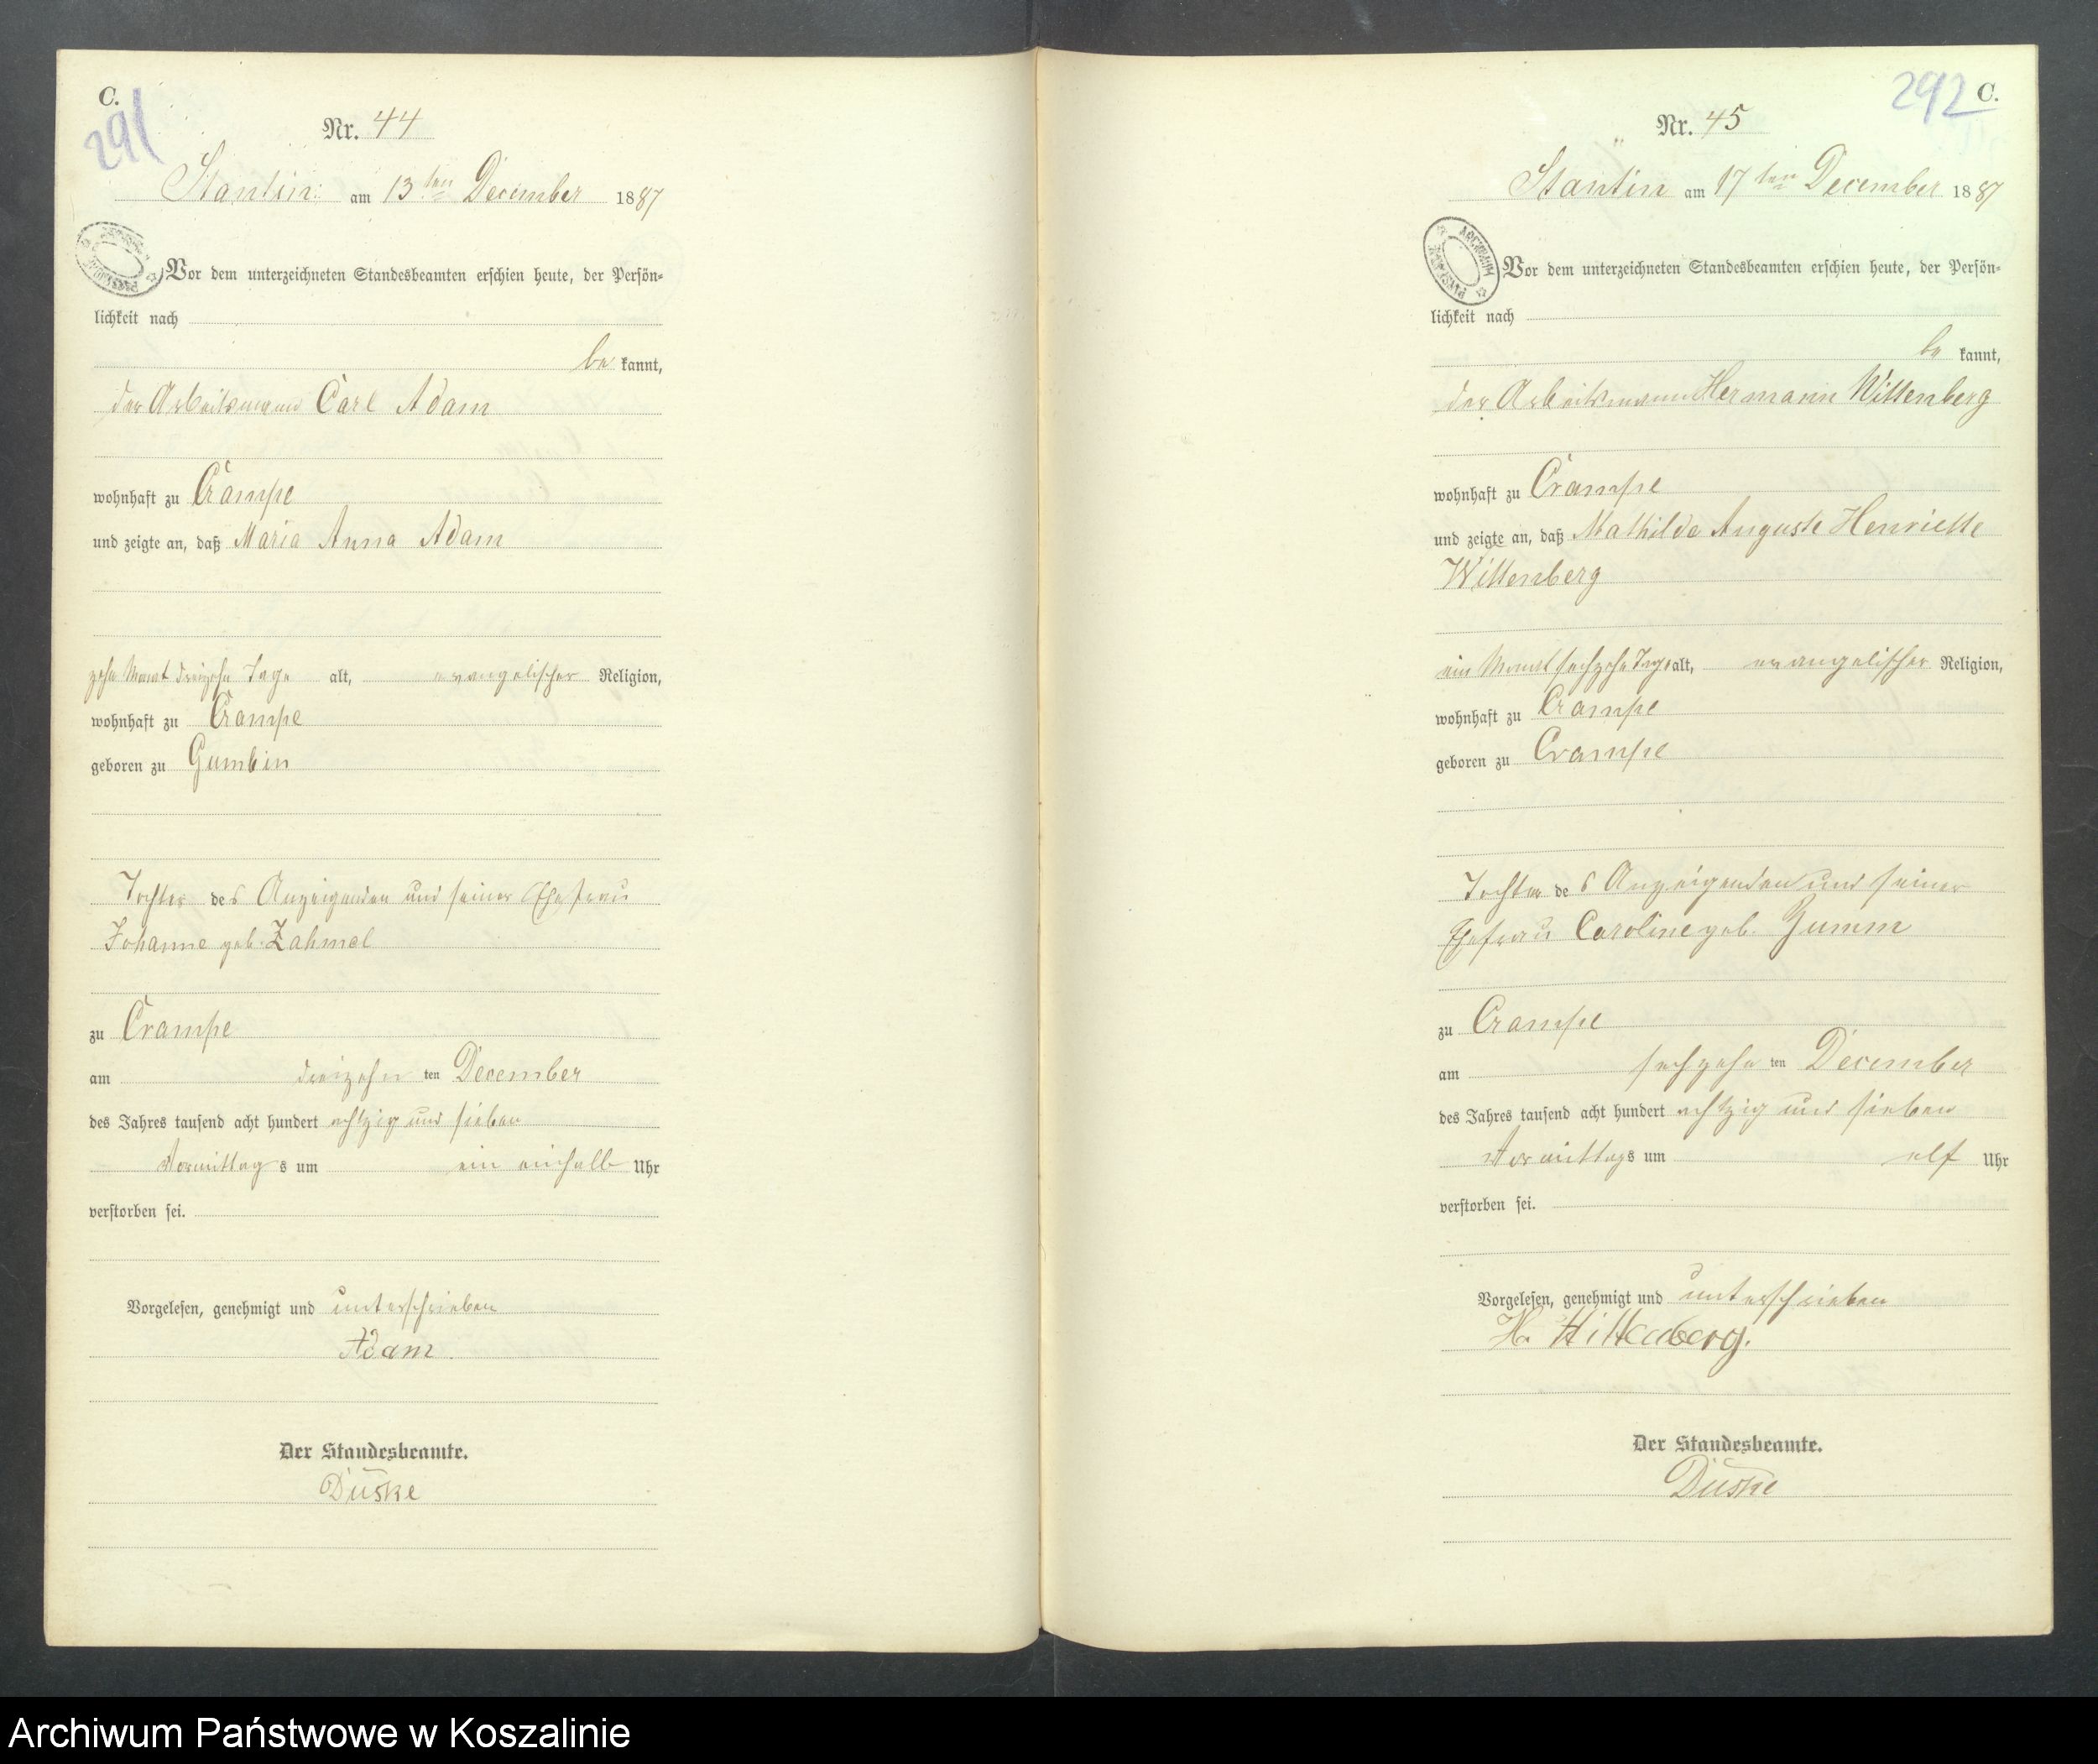 C.
291
Nr. 44
Stantin am 13ten December 1887
Vor dem unterzeichneten Standesbeamten erschien heute, der Persön-
lichkeit nach
be kannt,
der Arbeitsmann Carl Adam
wohnhaft zu Crampe
und zeigte an, daß Maria Anna Adam
zehn Monat dreizehn Tage alt, evangelischer Religion,
wohnhaft zu Crampe
geboren zu Gumbin
Tochter des Anzeigenden und seiner Ehefrau
Johanne geb. Zahmel
zu Crampe
am dreizehn ten December
des Jahres tausend acht hundert achtzig und sieben
Vormittags um ein einhalb Uhr
verstorben sei.
Vorgelesen, genehmigt und unterschrieben
Adam.
Der Standesbeamte.
Düske
292 C.
Nr. 45
Stantin am 17ten December 1887
ARCHIWUM PAŃSTWOWE
Vor dem unterzeichneten Standesbeamten erschien heute, der Persön-
lichkeit nach
be kannt,
der Arbeitsmann Hermann Wittenberg
wohnhaft zu Crampe
und zeigte an, daß Mathilde Auguste Henriette
Wittenberg
ein Monat sechzehn Tage alt, evangelischer Religion,
wohnhaft zu Crampe
geboren zu Crampe
Tochter des Anzeigenden und seiner
Ehefrau Caroline geb. Gumm
zu Crampe
am sechzehn ten December
des Jahres tausend acht hundert achtzig und sieben
Vormittags um elf Uhr
verstorben sei.
Vorgelesen, genehmigt und unterschrieben
H. Wittenberg.
Der Standesbeamte.
Düske
Archiwum Państwowe w Koszalinie